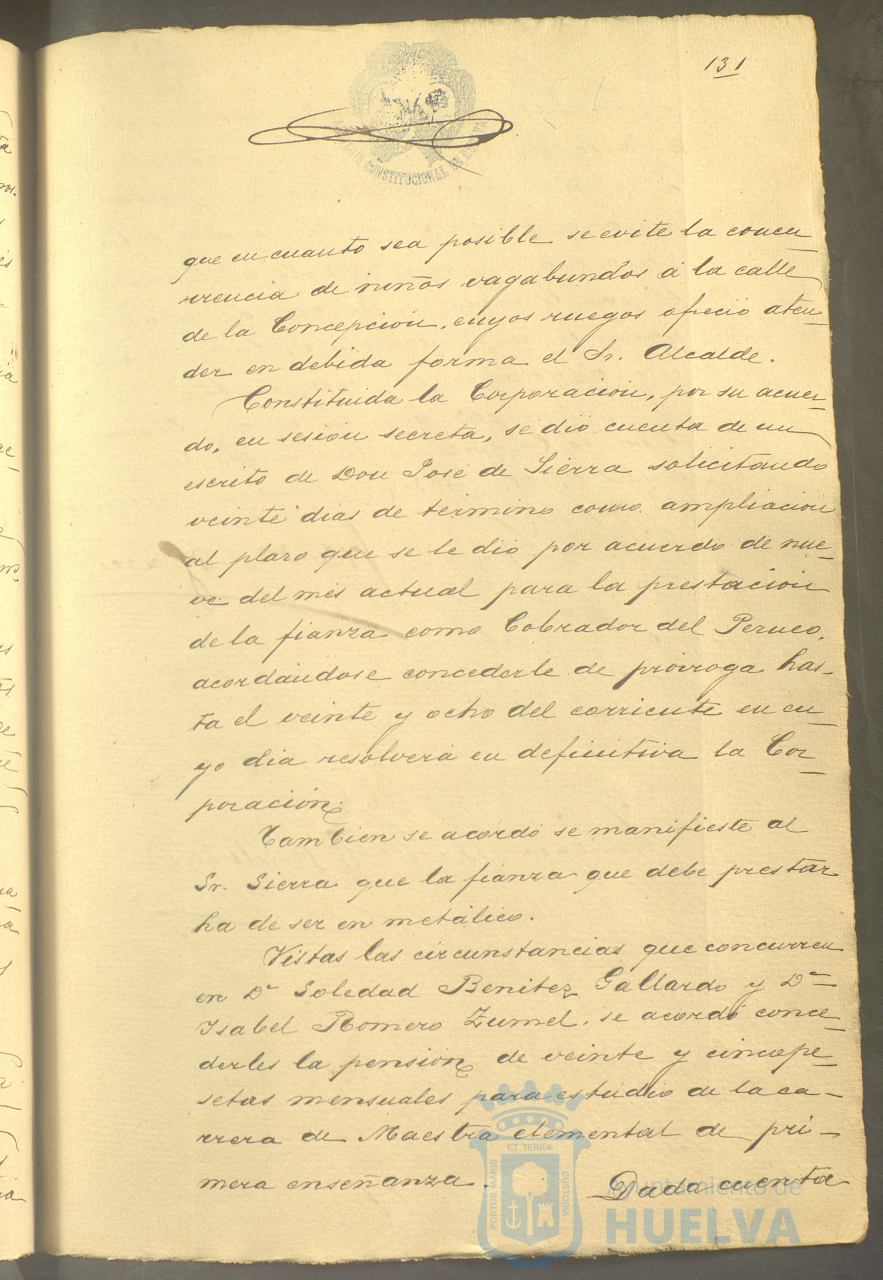 131
CONSTITUCIONAL
que en cuanto sea posible se evite la concu-
rrencia de niños vagabundos á la calle
de la Concepción, cuyos ruegos ofreció aten-
der en debida forma el Sr. Alcalde.
Constituida la Corporación, por su acuer-
do, en sesión secreta, se dió cuenta de un
escrito de Don José de Sierra solicitando
veinte dias de término como ampliación
al plazo que se le dió por acuerdo de nue-
ve del mes actual para la prestación
de la fianza como Cobrador del Peruco,
acordándose concederle de prórroga has-
ta el veinte y ocho del corriente en cu-
yo dia resolverá en definitiva la Cor-
poración.
Tambien se acordó se manifieste al
Sr. Sierra que la fianza que debe prestar
ha de ser en metálico.
Vistas las circunstancias que concurren
en Dª Soledad Benitez Gallardo y Dª
Isabel Romero Zumel, se acordó conce-
derles la pensión de veinte y cinco pe-
setas mensuales para estudio de la ca-
rrera de Maestra elemental de pri-
mera enseñanza. Dada cuenta
PORTUS MARIS ET TERRÆ CUSTODIA
Ayuntamiento de
HUELVA